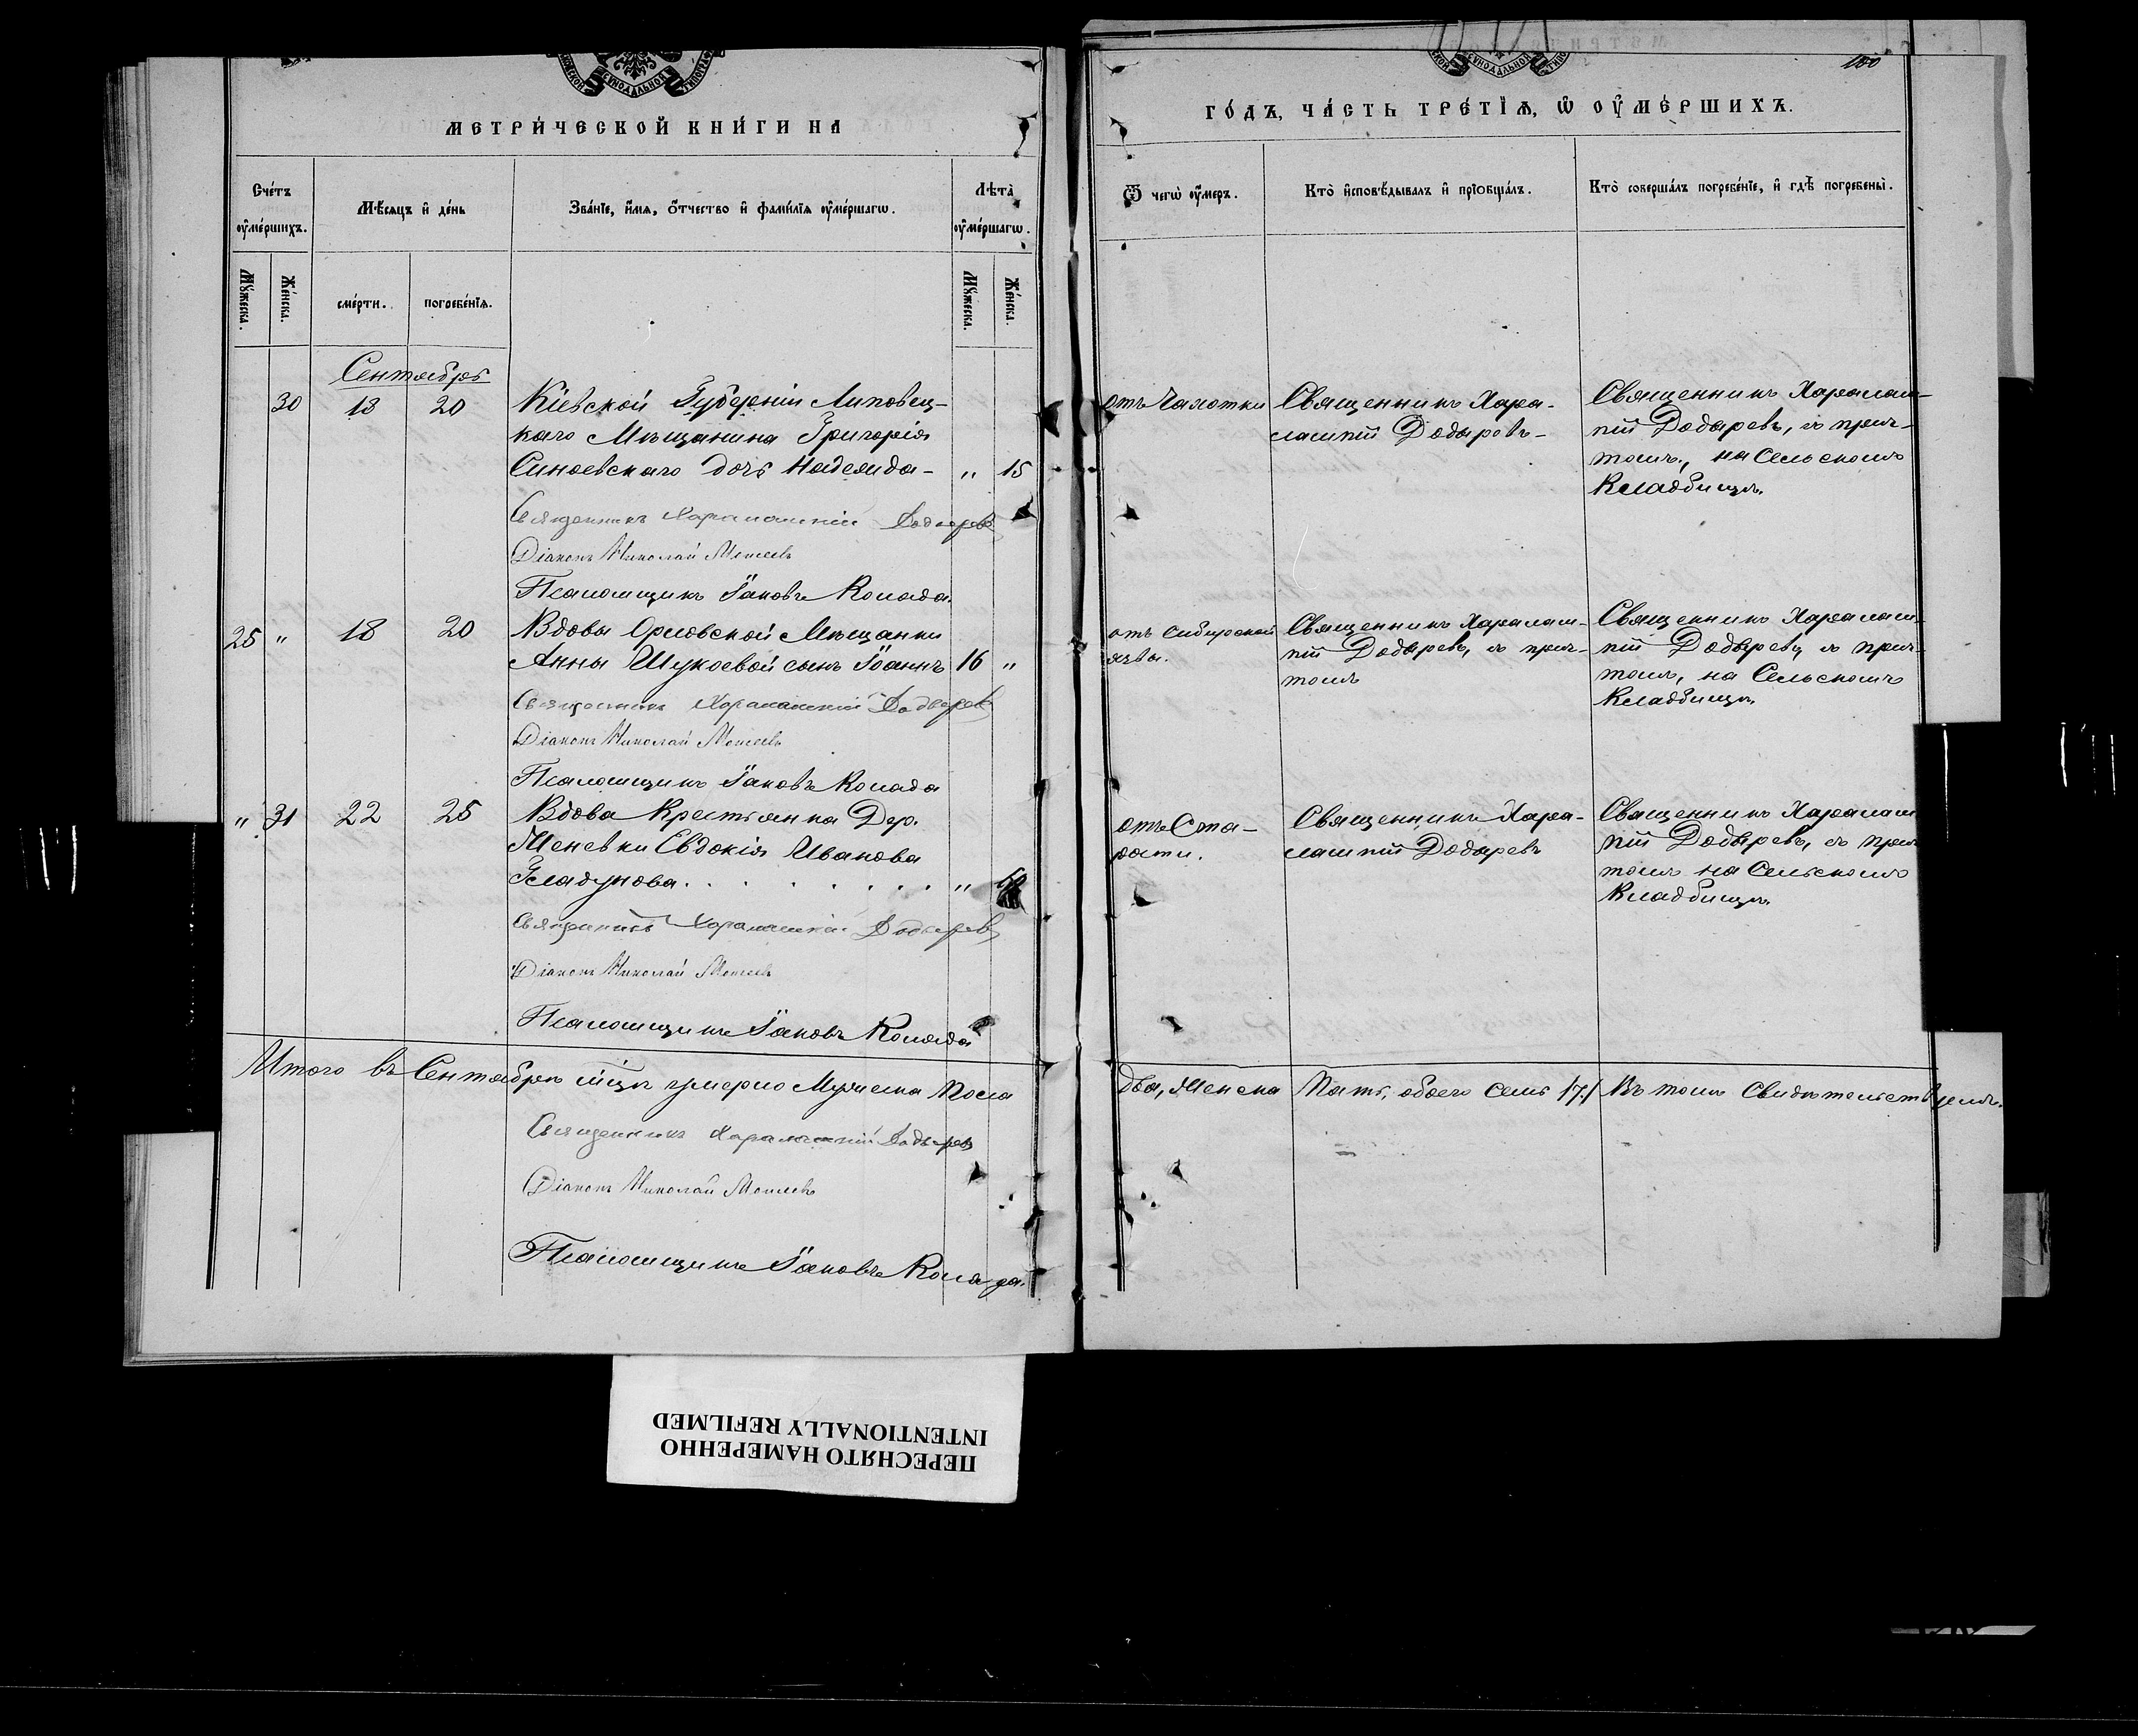 МЕТРИ́ЧЕСКОЙ КНИ́ГИ НА
Счéтъ ᲂу҆мéршихъ.
Мѣ́сяцъ и҆ дéнь
Звáнїе, и҆́мя, ѻ҆́тчество и҆ фамѝлїя ᲂу҆мéршагѡ.
Лѣтà ᲂу҆мéршагѡ.
Мꙋ́жеска.
Жéнска.
смéрти.
погребéнїѧ.
Мꙋ́жеска.
Жéнска.
Сентябрь
30 13 20 Кіевской Губерніи Липовец-
каго Мѣщанина Григорія
Синаевскаго дочь Надежда- „ 15
Священникъ Харалампій Додыревъ
Діаконъ Николай Моисеевъ
Псаломщикъ Іаковъ Колада.
25 „ 18 20 Вдовы Орловской Мѣщанки
Анны Шукаевой сынъ Іоаннъ 16 „
Священникъ Харалампій Додыревъ
Діаконъ Николай Моисеевъ
Псаломщикъ Іаковъ Колада
„ 31 22 25 Вдова Крестьянка Дер.
Евдокія Иванова
Гладунова . . . . . . . . „
Священникъ Харалампій Додыревъ
Діаконъ Николай Моисеевъ
Псаломщикъ Іаковъ Колада
Итого въ Сентябрѣ мцѣ умерло Мужеска Пола
Священникъ Харалампій Додыревъ
Діаконъ Николай Моисеевъ
Псаломщикъ Іаковъ Колада.
100
ГО́ДЪ, ЧА́СТЬ ТРЕ́ТЇѦ, Ѡ҆ ОУ҆МЕ́РШИХЪ.
Ѿ чегѡ̀ ᲂу҆́меръ.
Ктò и҆сповѣ́дывалъ и҆ прїѡбщáлъ.
Ктò совершáлъ погребéнїе, и҆ гдѣ̀ погребены̀.
отъ Чахотки
Священникъ Хара-
лампій Додыревъ-
Священникъ Харалам-
пій Додыревъ, съ прич-
томъ, на Сельскомъ
Кладбищѣ.
отъ Сибирской
язвы.
Священникъ Харалам-
пій Додыревъ, съ прич-
томъ
Священникъ Харалам-
пій Додыревъ, съ прич-
томъ, на Сельскомъ
Кладбищѣ.
отъ Ста-
рости.
Священникъ Хара-
лампій Додыревъ
Священникъ Харалам
пій Додыревъ, съ прич
томъ на Сельскомъ
Кладбищѣ.
два, Женска Пять, обоего Семь /7./ Въ томъ Свидѣтельствуемъ.
ПЕРЕСНЯТО НАМЕРЕННО
INTENTIONALLY REFILMED